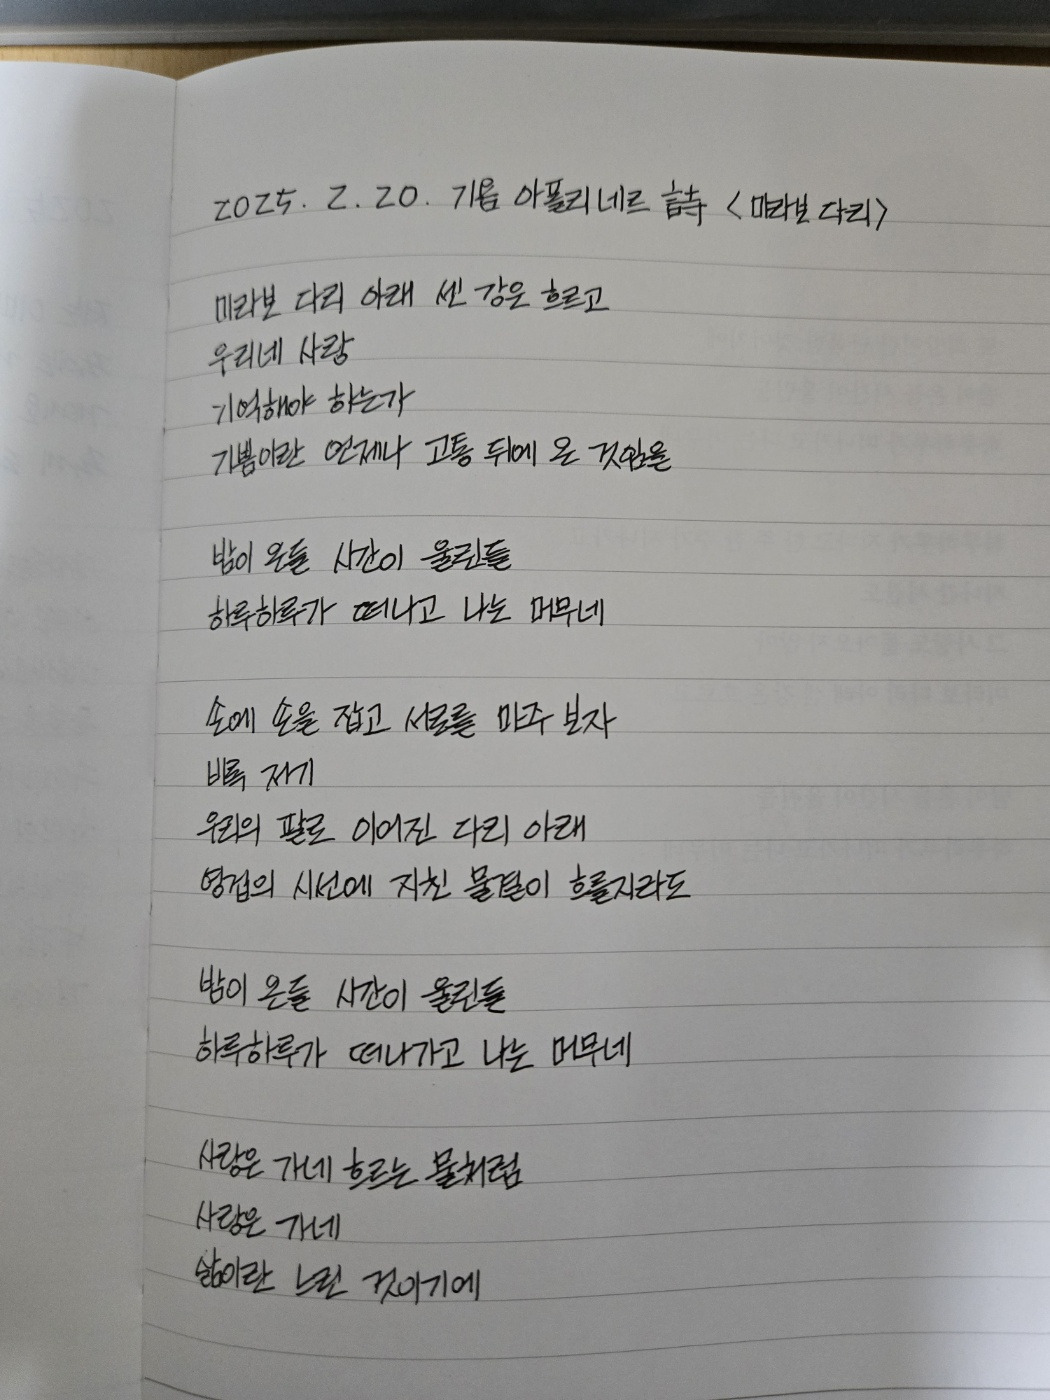 2025. 2. 20. 기욤 아폴리네르 詩 <미라보 다리>
미라보 다리 아래 센 강은 흐르고
우리네 사랑
기억해야 하는가
기쁨이란 언제나 고통 뒤에 온 것임을
밤이 온들 시간이 울린들
하루하루가 떠나고 나는 머무네
손에 손을 잡고 서로를 마주 보자
비록 저기
우리의 팔로 이어진 다리 아래
영겁의 시선에 지친 물결이 흐를지라도
밤이 온들 시간이 울린들
하루하루가 떠나가고 나는 머무네
사랑은 가네 흐르는 물처럼
사랑은 가네
삶이란 느린 것이기에